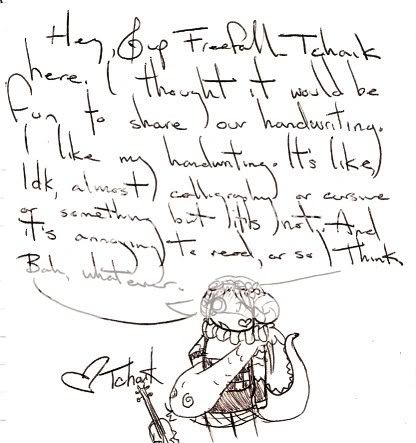 Hey, sup Freefall_Tchaik
here. I thought it would be
fun to share our handwriting.
I like my handwriting. It's like,
Idk, almost calligraphy or cursive
or something but it's not. And
it's annoying to read, or so I think
Bah, whatever.
Tchaik